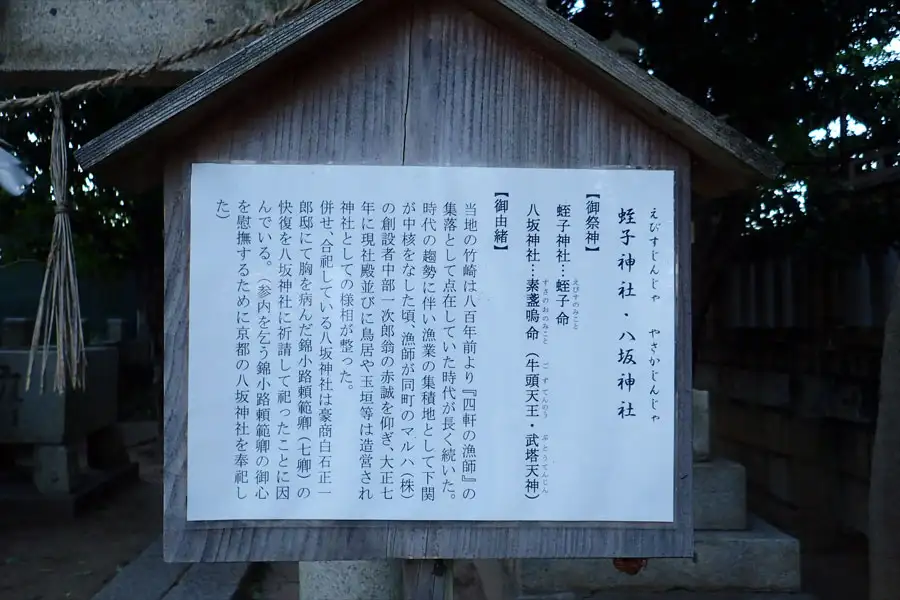 えびすじんじゃ　やさかじんじゃ
蛭子神社・八坂神社
【御祭神】
えびすのみこと
蛭子神社…蛭子命
すさのおのみこと　ごずてんのう　ぶとうてんじん
八坂神社…素盞嗚命（牛頭天王・武塔天神）
【御由緒】
当地の竹崎は八百年前より『四軒の漁師』の
集落として点在していた時代が長く続いた。
時代の趨勢に伴い漁業の集積地として下関
が中核をなした頃、漁師が同町のマルハ（株）
の創設者中部一次郎翁の赤誠を仰ぎ、大正七
年に現社殿並びに鳥居や玉垣等は造営され
神社としての様相が整った。
併せ、合祀している八坂神社は豪商白石正一
郎邸にて胸を病んだ錦小路頼範卿（七卿）の
快復を八坂神社に祈請して祀ったことに因
んでいる。（参内を乞う錦小路頼範卿の御心
を慰撫するために京都の八坂神社を奉祀し
た）